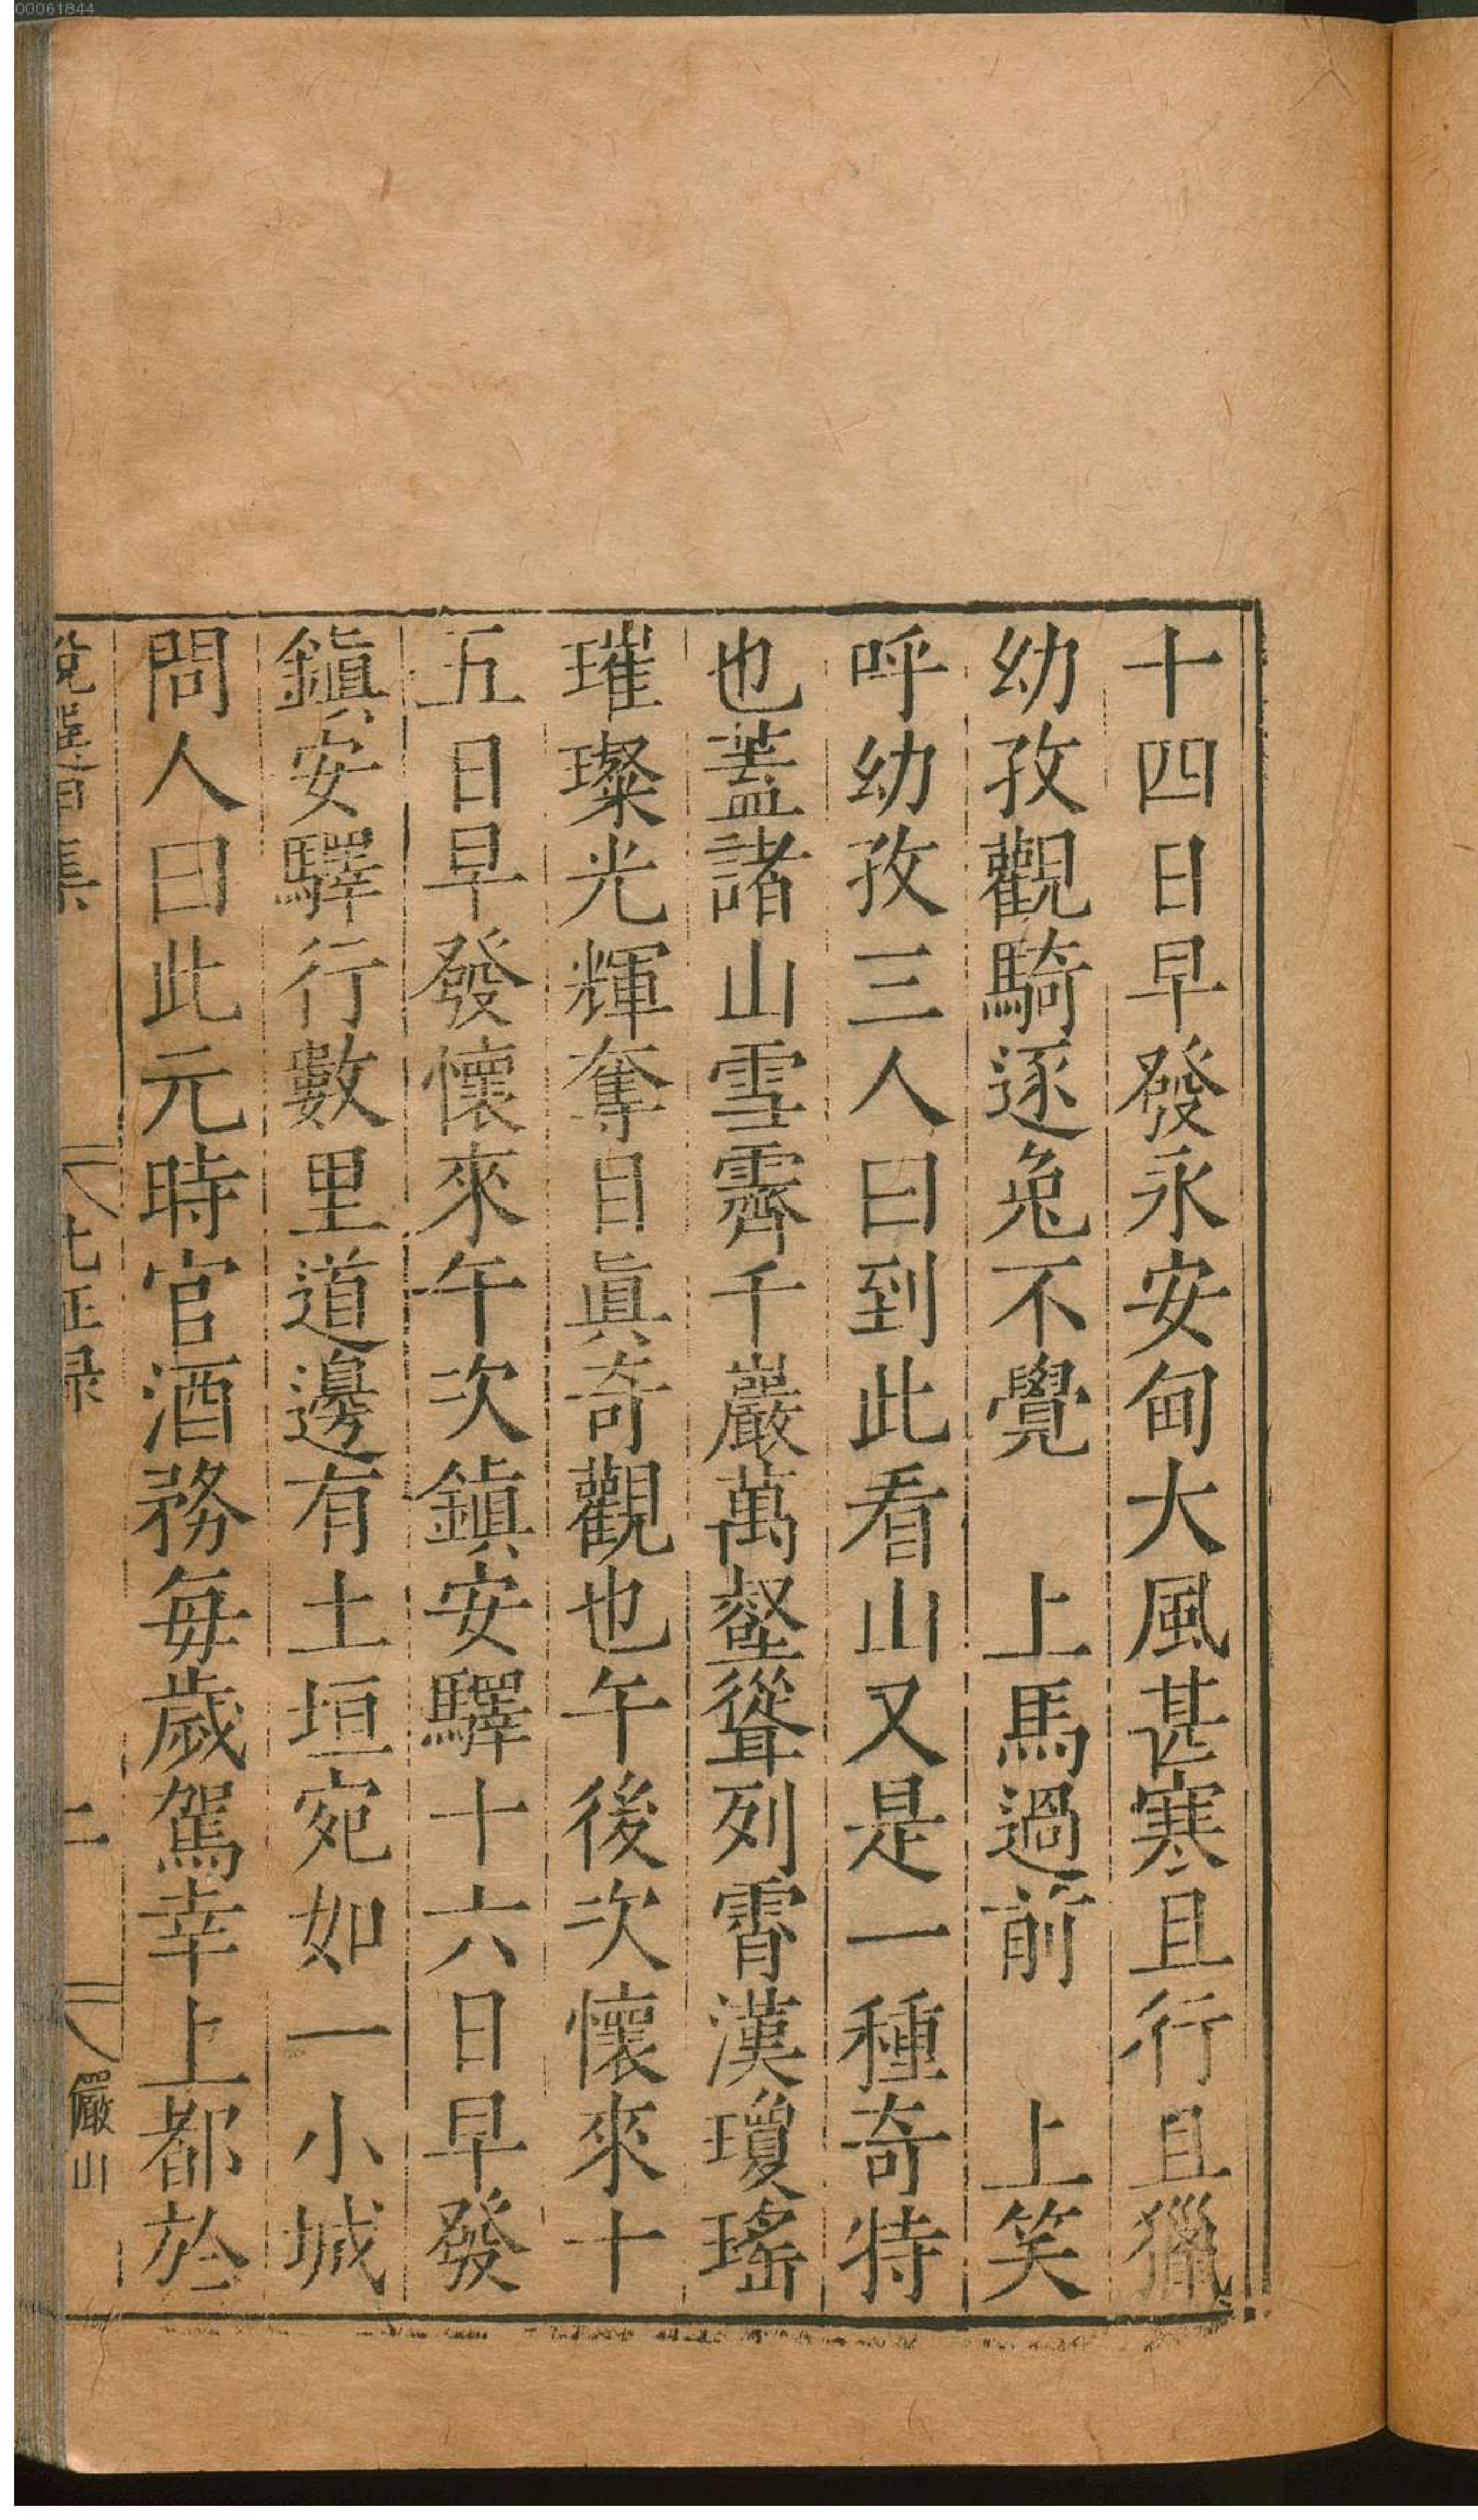 十四日早發永安甸大風甚寒且行且獵
幼孜觀騎逐兔不覺　上馬過前　上笑
呼幼孜三人曰到此看山又是一種奇特
也蓋諸山雪霽千巖萬壑聳列霄漢瓊瑤
璀璨光輝奪目眞奇觀也午後次懷來十
五日早發懷來午次鎭安驛十六日早發
鎭安驛行數里道邊有土垣宛如一小城
問人曰此元時官酒務每歲駕幸上都於
說選甲集　北征录　二　儼山
00061844